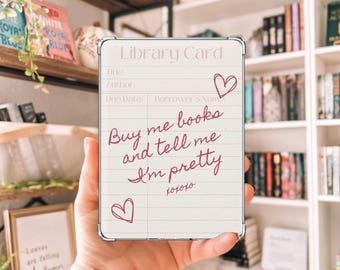 Library Card
Title
Author
Due Date Borrower's Name
Buy me books
and tell me
I'm pretty
xoxoxo
Leaves
are falling